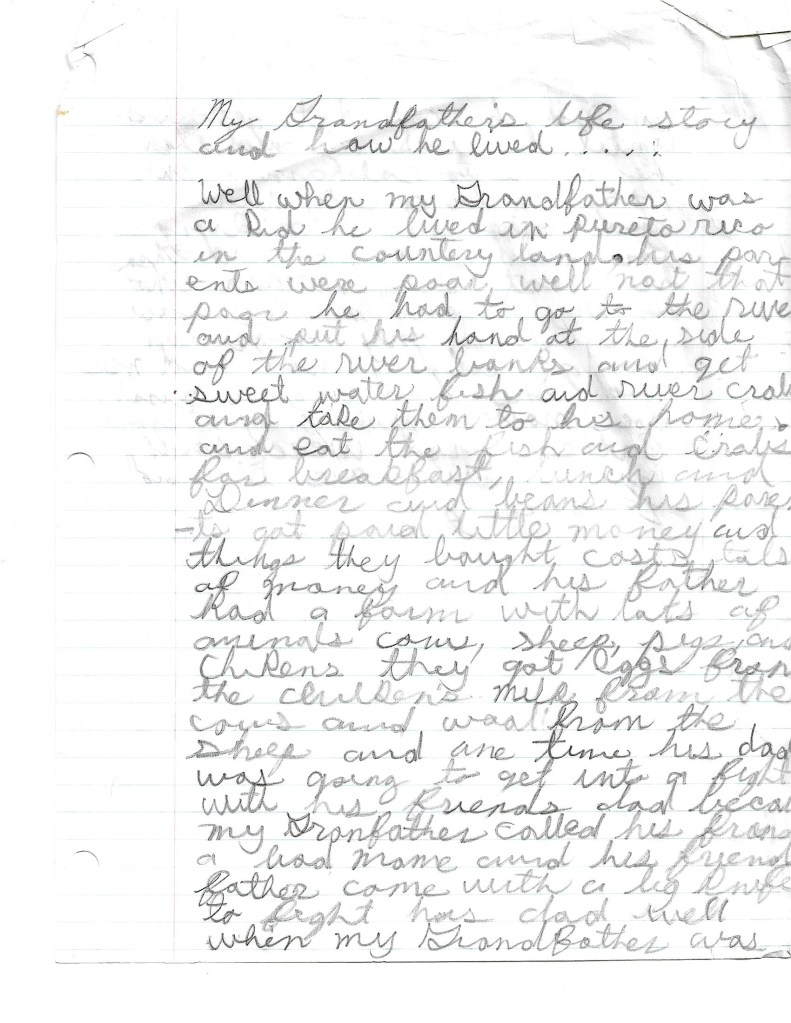 My Grandfather's life story
and how he lived.....
Well when my Grandfather was
a kid he lived in pureto rico
in the countery land. his par
ents were poor, well not that
poor he had to go to the rive
and put his hand at the side
of the river banks and get
sweet water fish and river crab
and take them to his home.
and eat the fish and Crabs
for breakfast, lunch and
Dinner and beans his paren
-ts got paid little money and
things they bought costs lots
of money and his father
had a farm with lots of
animals cows, sheep, pigs, and
Chikens they got eggs from
the chikens milk from the
cows and wool from the
sheep and one time his dad
was going to get into a fight
with his friends dad becau
my Granfather called his
a bad name and his friend
father came with a big knife
to fight his dad well
when my Grandfather was